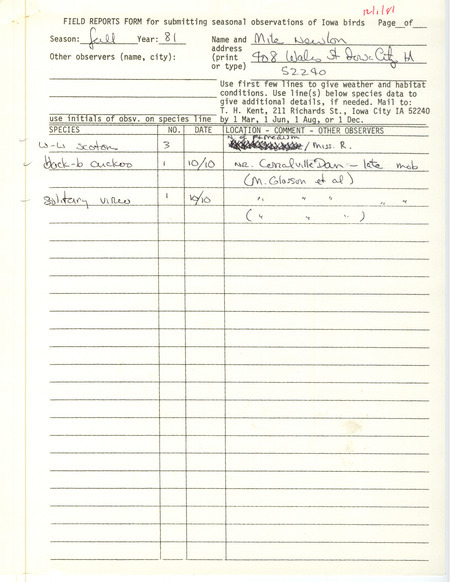 12/1/81
FIELD REPORTS FORM for submitting seasonal observations of Iowa birds Page__of__
Season: fall Year: 81 Name and Mike Newlon
address 908 Wales St Iowa City IA
Other observers (name, city): (print
or type) 52240
Use first few lines to give weather and habitat
conditions. Use line(s) below species data to
give additional details, if needed. Mail to:
T. H. Kent, 211 Richards St., Iowa City IA 52240
use initials of obsv. on species line by 1 Mar, 1 Jun, 1 Aug, or 1 Dec.
SPECIES NO. DATE LOCATION - COMMENT - OTHER OBSERVERS
N of
w-w scoters 3 / Miss. R.
black-b cuckoo 1 10/10 nr. Coralville Dam - late
(M. Glasson et al)
solitary vireo 1 10/10 " " " " "
( " " " )